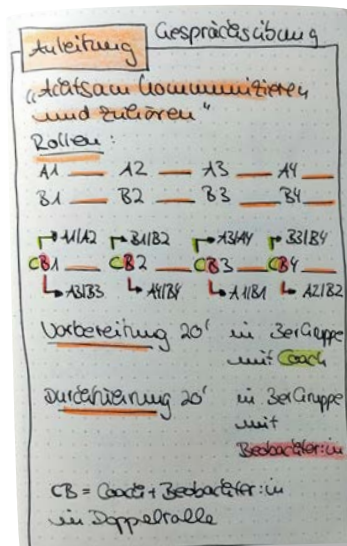 Anleitung Gesprächsübung
„Achtsam kommunizieren
und zuhören"
Rollen:
A1 ___ A2 ___ A3 ___ A4 ___
B1 ___ B2 ___ B3 ___ B4 ___
A1/A2 B1/B2 A3/A4 B3/B4
CB1 ___ CB2 ___ CB3 ___ CB4 ___
A3/B3 A4/B4 A1/B1 A2/B2
Vorbereitung 20' in 3er Gruppe
mit Coach
Durchführung 20' in 3er Gruppe
mit
Beobachter:in
CB = Coach + Beobachter:in
in Doppelrolle